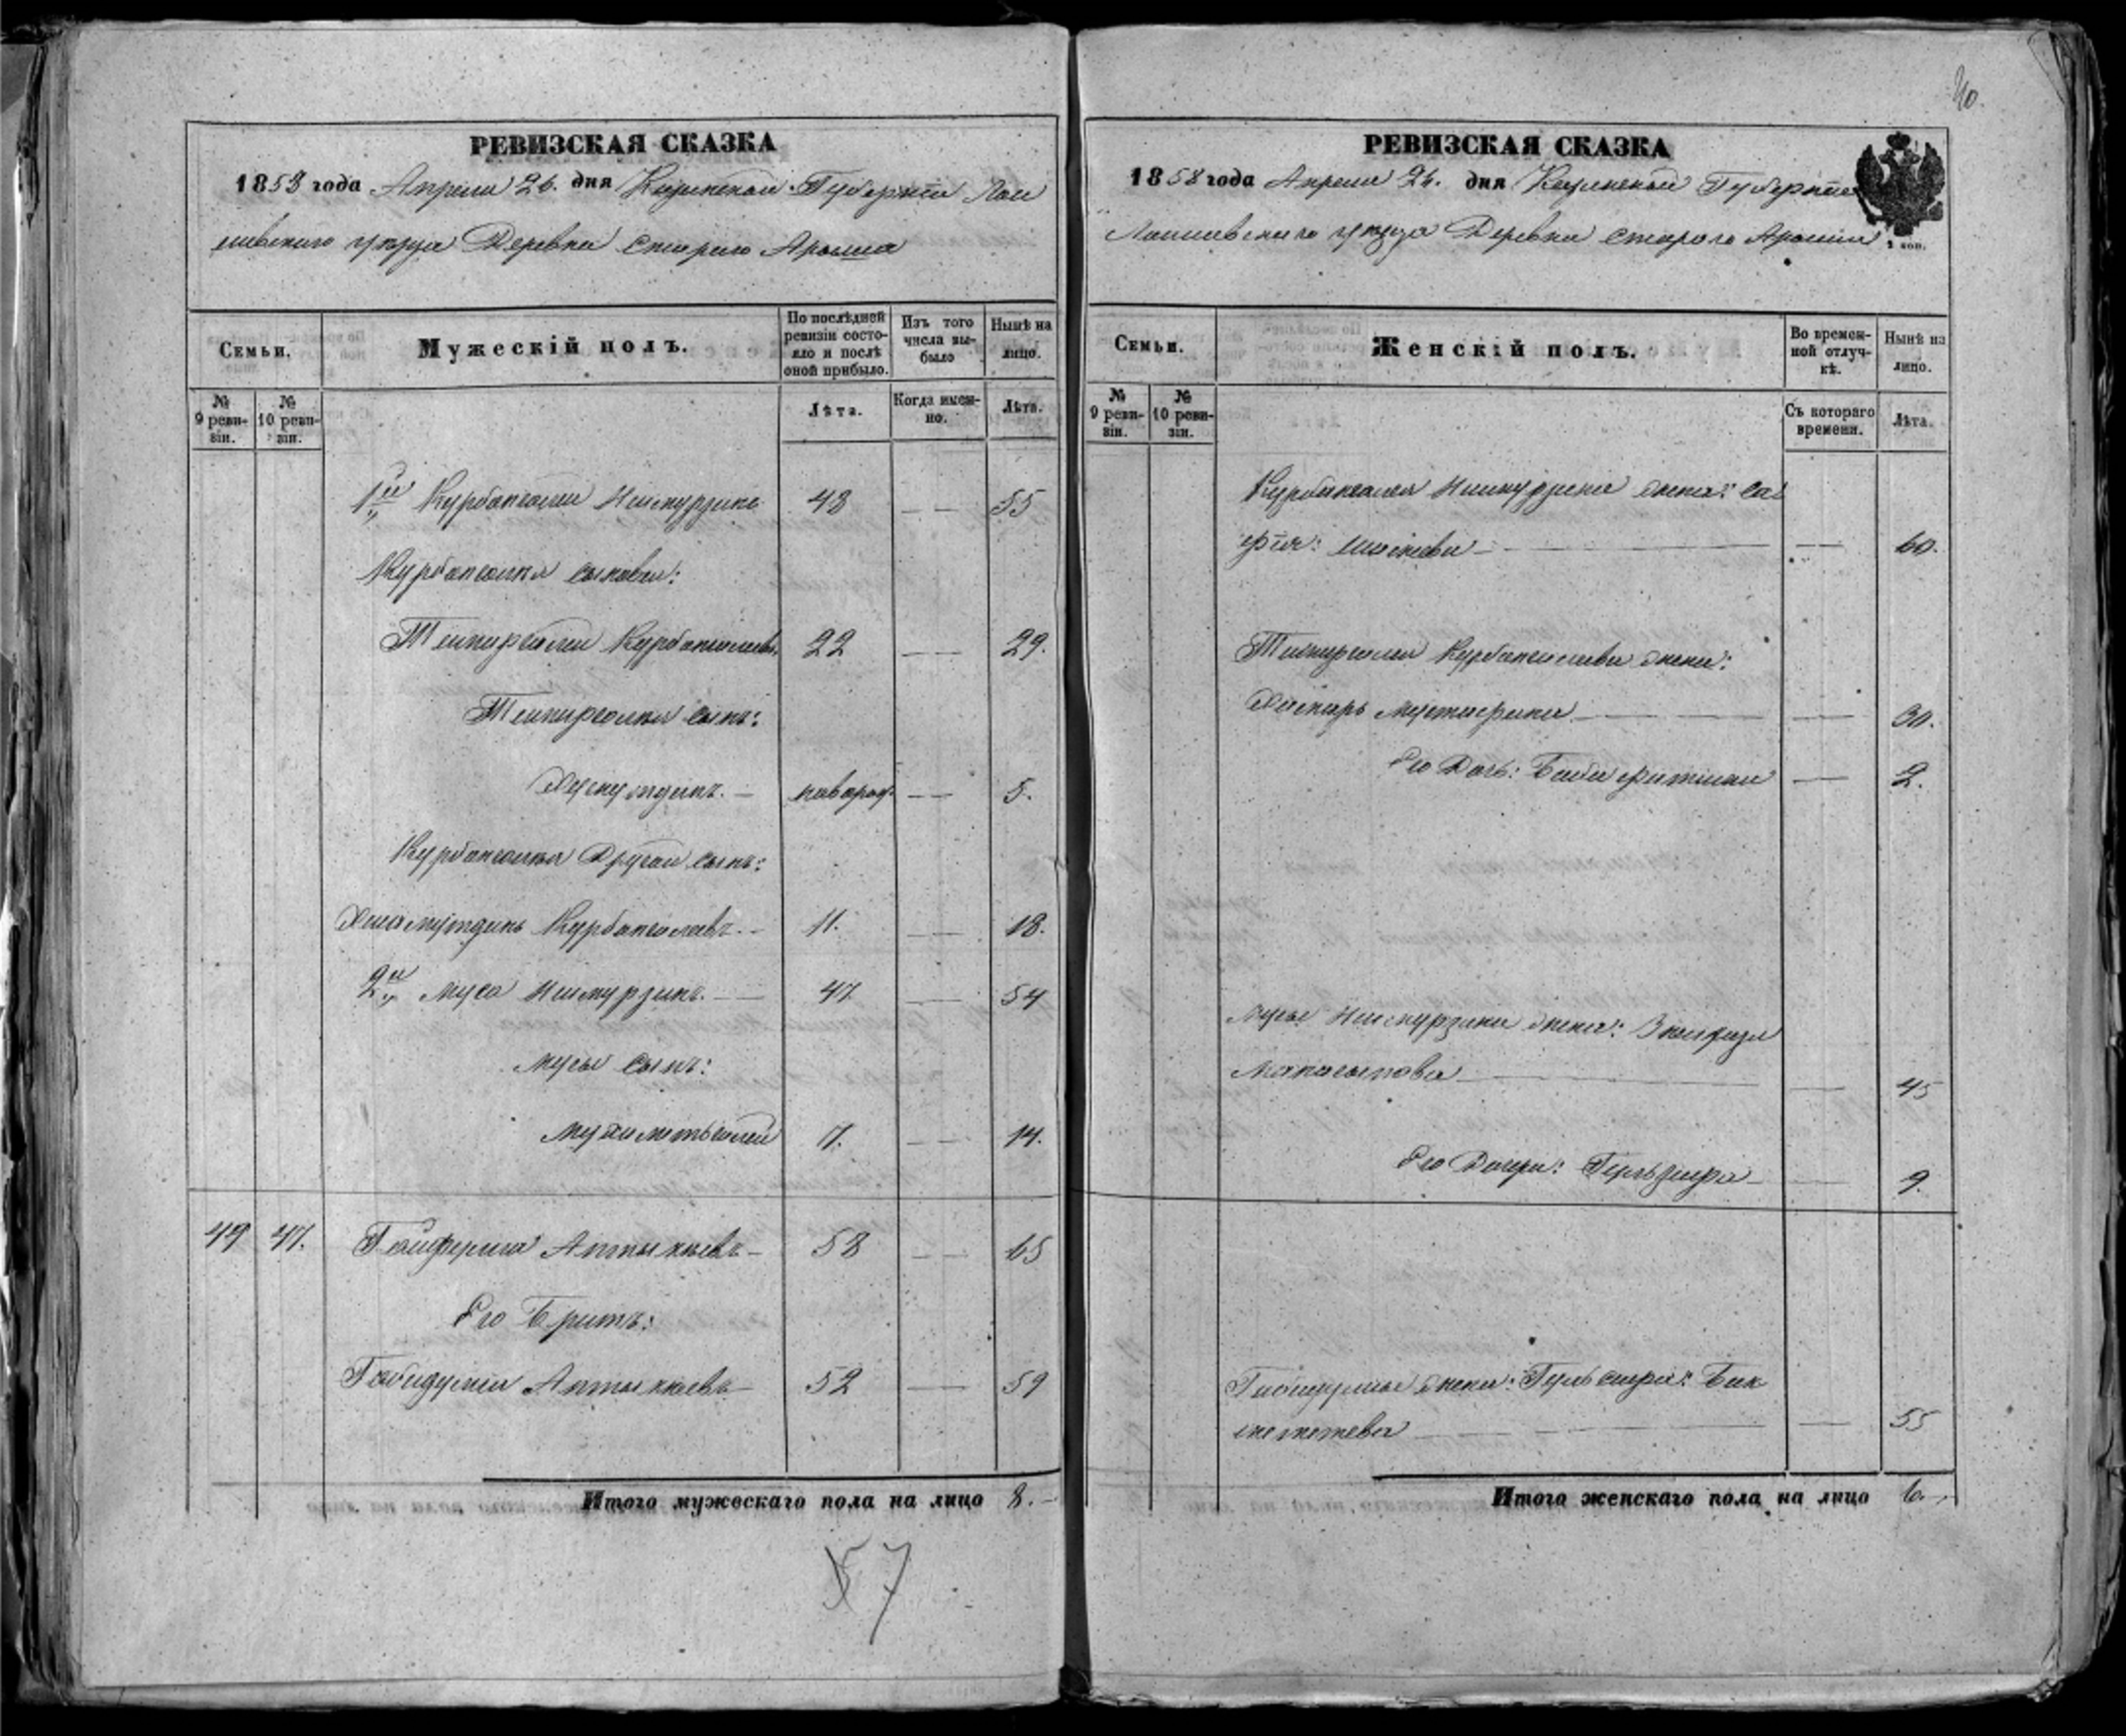 40.
РЕВИЗСКАЯ СКАЗКА
1858 года Апреля 26. дня Казанской Губернiи Лаи
шевскаго уѣзда Деревни Стараго Арыша
Семьи.
Мужескiй полъ.
По послѣдней ревизiи состояло и послѣ оной прибыло.
Изъ того числа выбыло
Нынѣ на лицо.
№ 9 ревизiи.
№ 10 ревизiи.
Лѣта.
Когда именно.
Лѣта.
1й Курбангалей Ишмурзинъ 48 — 55
Курбангалея сыновья:
Темиргалей Курбангалеевъ 22 — 29.
Темиргалея сынъ:
новорож. — 5.
Курбангалея Другой сынъ:
Курбангалеевъ 11. — 18.
2й Муса Ишмурзинъ. — 47 — 54
Мусы сынъ:
Мухаметьгалей 7. — 14.
49 47. Гайфулла Аптыкаевъ — 58 — 65
Его Братъ:
Габидулла Аптыкаевъ — 52 — 59
Итого мужескаго пола на лицо 8. —
7
РЕВИЗСКАЯ СКАЗКА
1858 года Апреля 26. дня Казанской Губернiи
Лаишевскаго уѣзда Деревни Стараго Арыша
Семьи.
Женскiй полъ.
Во временной отлучкѣ.
Нынѣ на лицо.
№ 9 ревизiи.
№ 10 ревизiи.
Съ котораго времени.
Лѣта.
Курбангалея Ишмурзина жена: Са
фiя: — — 60.
Темиргалея Курбангалеева жена:
Мустафина — — 30.
Его Дочь: Биби Фатима — 2.
Мусы Ишмурзина жена:
— — 45
Его Дочери: Гульзифа — — 9.
Габидуллы жена: Бик
метева — — 55
Итого женскаго пола на лицо 6. —